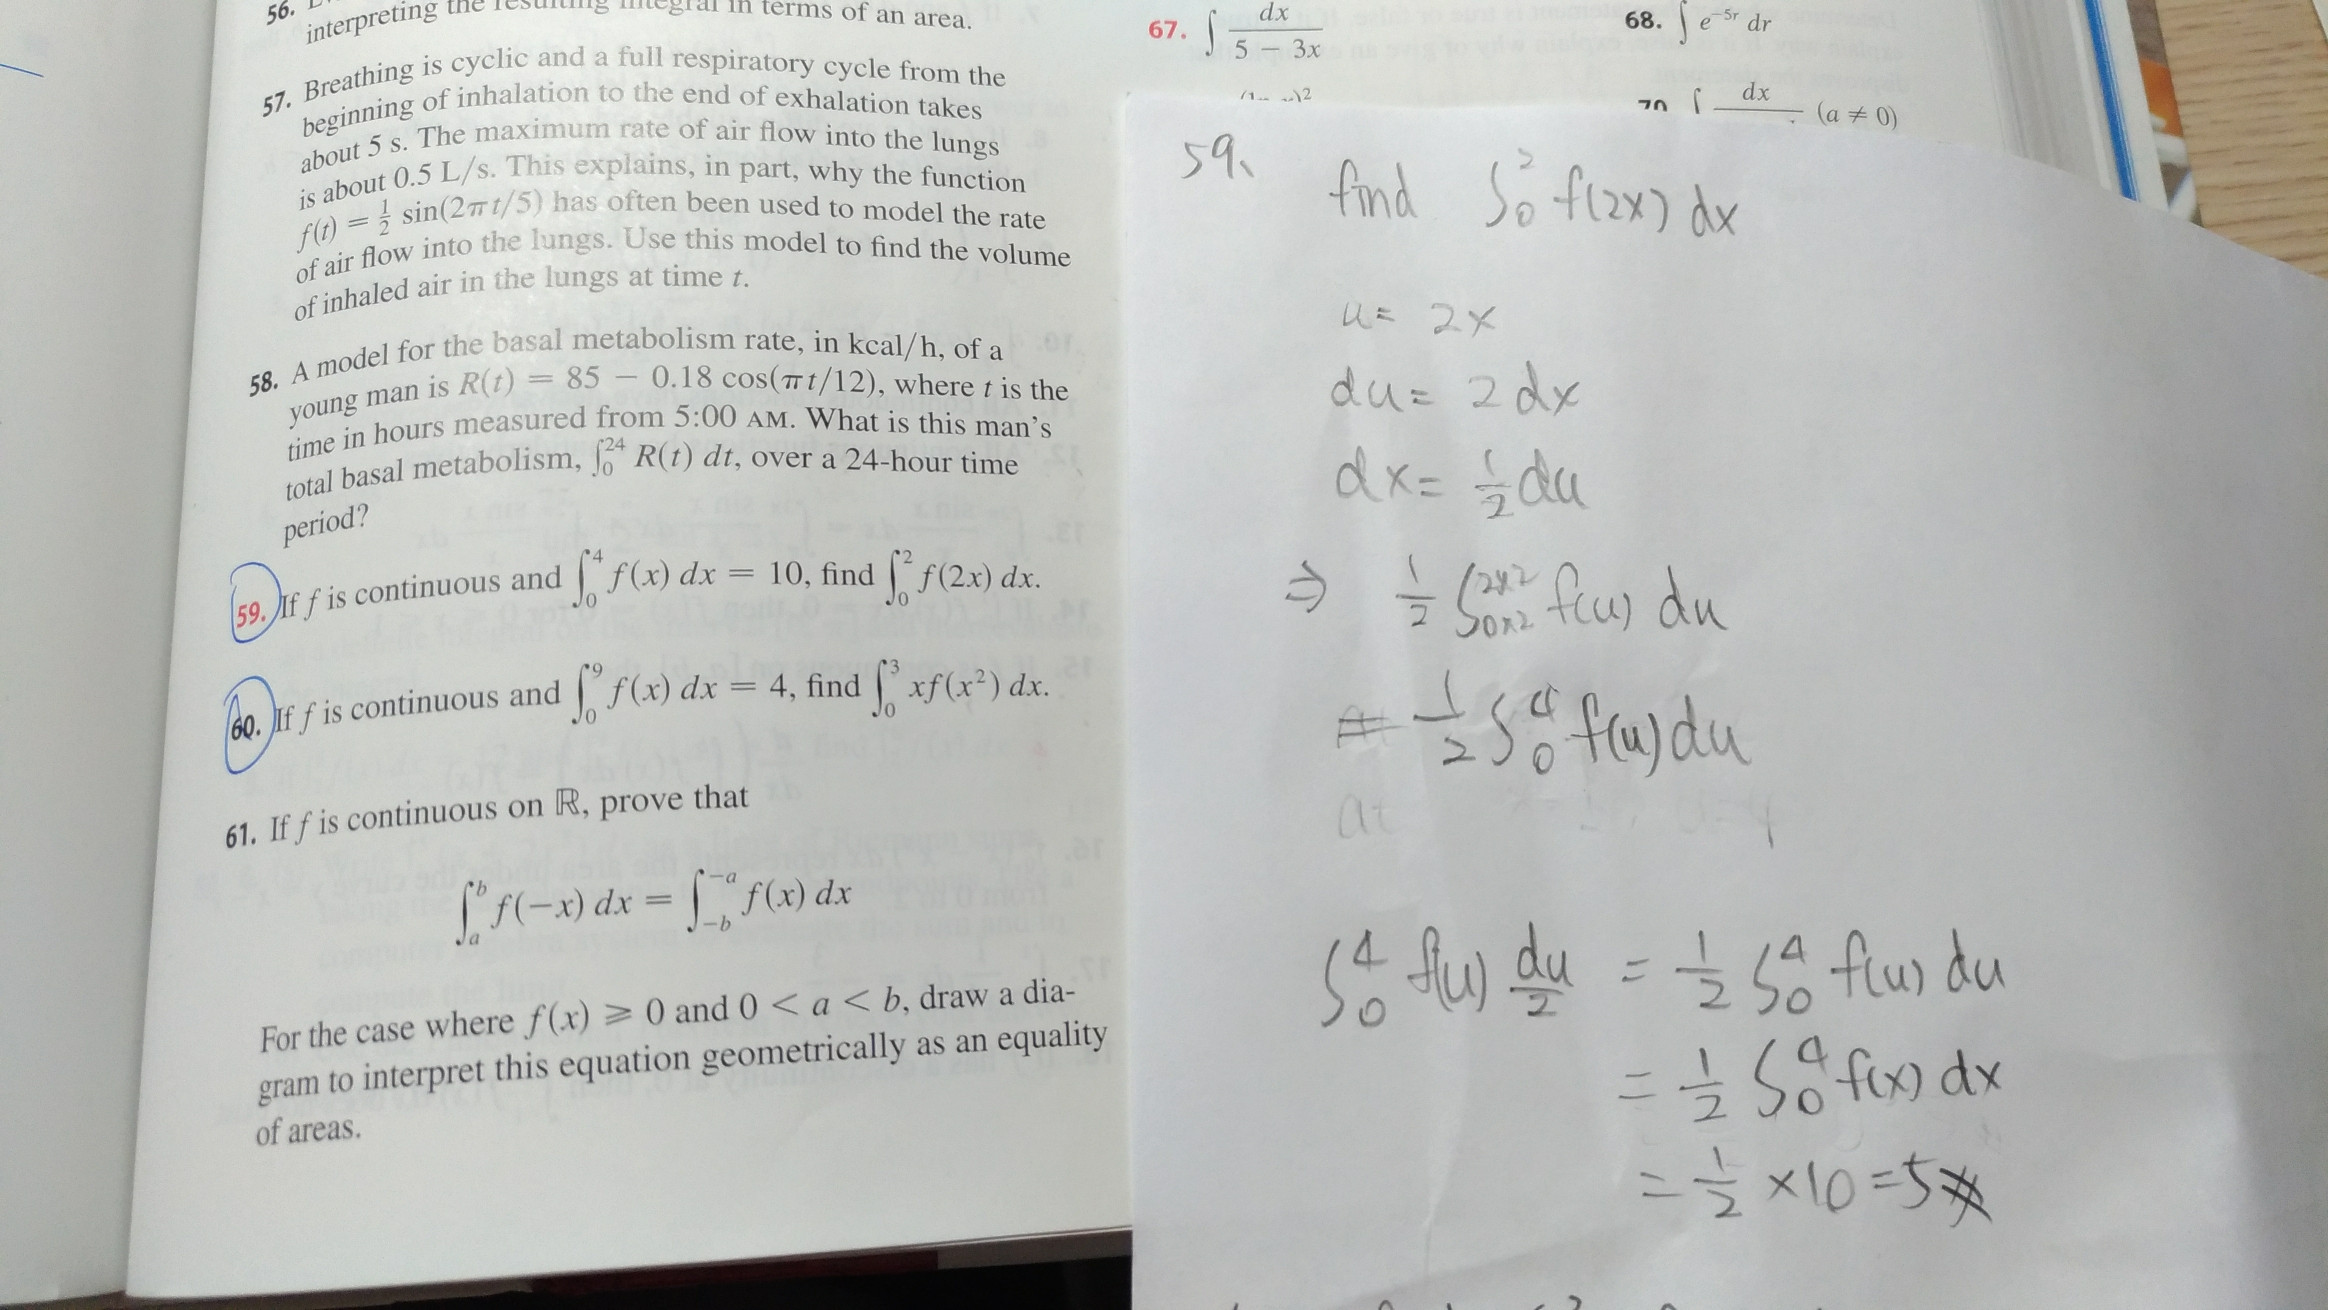 56.
interpreting the resulting integral in terms of an area.
57. Breathing is cyclic and a full respiratory cycle from the
beginning of inhalation to the end of exhalation takes
about 5 s. The maximum rate of air flow into the lungs
is about 0.5 L/s. This explains, in part, why the function
f(t) = 1/2 sin(2πt/5) has often been used to model the rate
of air flow into the lungs. Use this model to find the volume
of inhaled air in the lungs at time t.
58. A model for the basal metabolism rate, in kcal/h, of a
young man is R(t) = 85 − 0.18 cos(πt/12), where t is the
time in hours measured from 5:00 AM. What is this man's
total basal metabolism, ∫₀²⁴ R(t) dt, over a 24-hour time
period?
59. If f is continuous and ∫₀⁴ f(x) dx = 10, find ∫₀² f(2x) dx.
60. If f is continuous and ∫₀⁹ f(x) dx = 4, find ∫₀³ xf(x²) dx.
61. If f is continuous on ℝ, prove that
∫_a^b f(−x) dx = ∫_{−b}^{−a} f(x) dx
For the case where f(x) ⩾ 0 and 0 < a < b, draw a dia-
gram to interpret this equation geometrically as an equality
of areas.
67. ∫ dx/(5 − 3x)
68. ∫ e^{−5r} dr
70 ∫ dx (a ≠ 0)
59、
find ∫₀² f(2x) dx
u = 2x
du = 2 dx
dx = 1/2 du
⇒ 1/2 ∫_{0×2}^{2×2} f(u) du
= 1/2 ∫₀⁴ f(u) du
∫₀⁴ f(u) du/2 = 1/2 ∫₀⁴ f(u) du
= 1/2 ∫₀⁴ f(x) dx
= 1/2 × 10 = 5